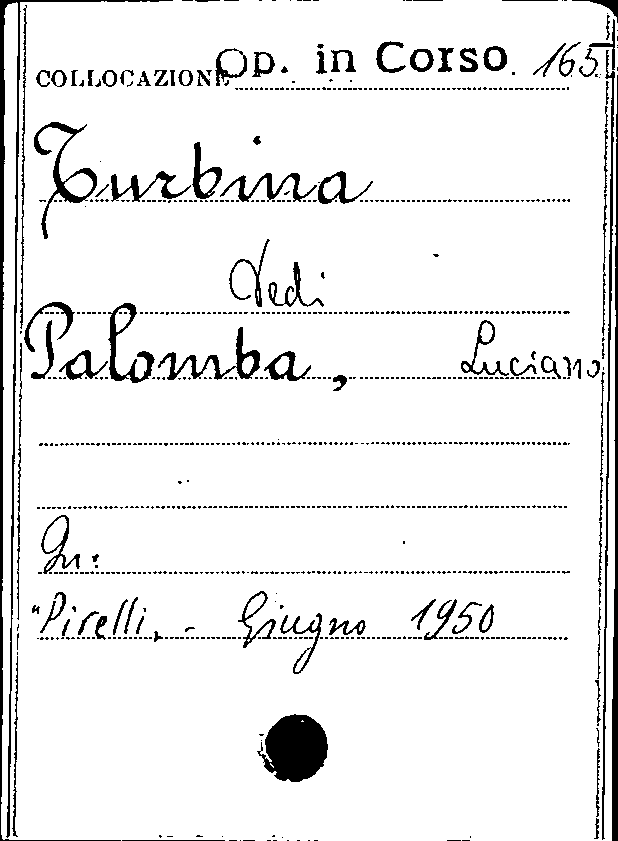 COLLOCAZIONE Op. in Corso. 165
Turbina
Vedi
Palomba, Luciano
In:
"Pirelli, - Giugno 1950